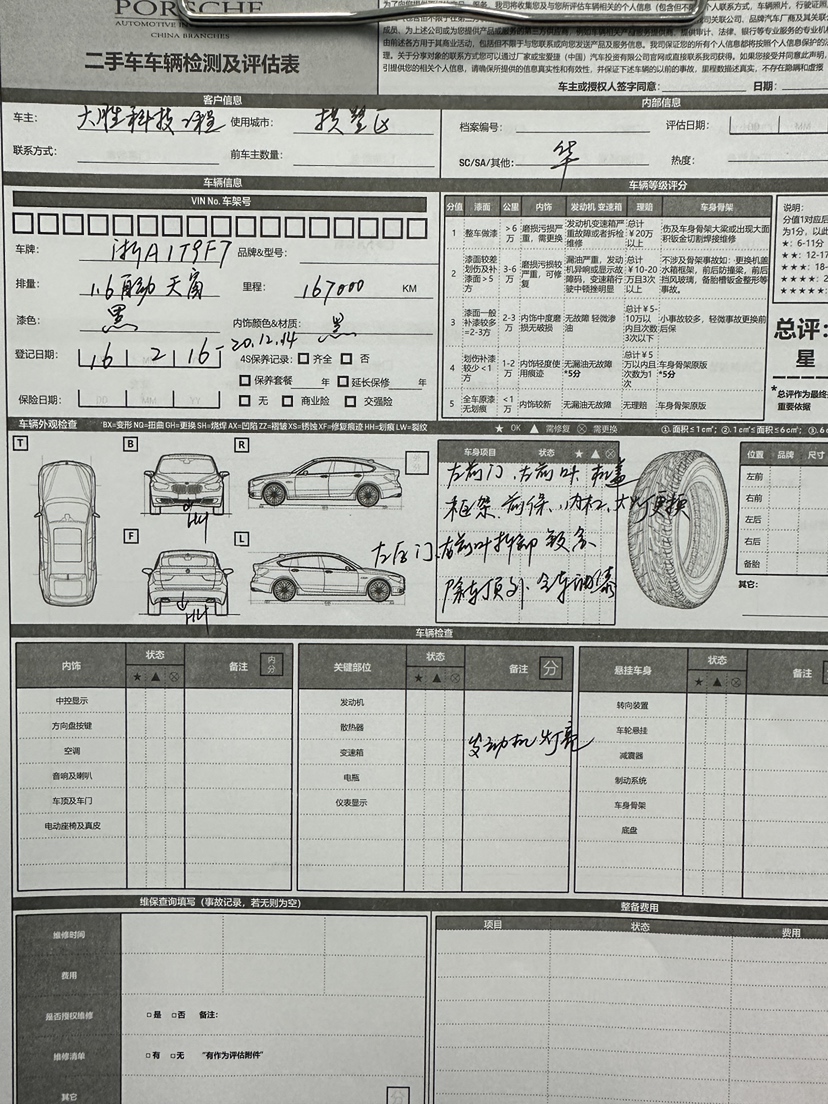 PORSCHE
CHINA BRANCHES
二手车车辆检测及评估表
成员。为上述公司或为您提供产品或服务的第三方供应商，例如车辆相关产品服务提供商、提供审计、法律、银行等专业服务的专业机构
由前述各方用于其商业活动，包括但不限于与您联系或向您发送产品及服务信息。我司保证您的所有个人信息都将按照个人信息保护的法
车主或授权人签字同意： 日期：
客户信息
内部信息
车主： 大胜科技 使用城市：
档案编号： 评估日期： MM
联系方式： 前车主数量：
SC/SA/其他： 华 热度：
车辆信息
VIN No. 车架号
车牌： 浙A1T9F7 品牌&型号：
排量： 1.6自动 天窗 里程： 167000 KM
漆色： 黑 内饰颜色&材质： 黑
登记日期： 16 2 16 20.12.14 4S保养记录： 齐全 否
保养套餐 年 延长保修 年
保险日期： DD MM YY 无 商业险 交强险
车辆等级评分
分值 漆面 公里 内饰 发动机 变速箱 理赔 车身骨架
1 整车做漆 >6万 磨损污损严重，需更换 发动机变速箱严重故障或者拆检维修 总计￥20万以上 伤及车身骨架大梁或出现大面积钣金切割焊接维修
2 漆面较差划伤及补漆面>5方 3-6万 磨损污损较严重，可修复 漏油严重，发动机异响或显示故障码，变速箱行驶中顿挫明显 总计￥10-20万且3次以上 不涉及骨架事故如：更换机盖水箱框架，前后防撞梁，前后挡风玻璃，备胎槽钣金整形等事故。
3 漆面一般补漆较多=2-3方 2-3万 内饰中度磨损无破损 无故障 轻微渗油 总计￥5-10万以内且次数3次以下 小事故较多，轻微事故更换前后保
4 划伤补漆较少<1方 1-2万 内饰轻度使用痕迹 无漏油无故障*5分 总计￥5万以内且次数为1次 车身骨架原版*5分
5 全车原漆无划痕 <1万 内饰较新 无漏油无故障 无理赔 车身骨架原版
说明：
分值1对应后
为1分，以此
★：6-11分
★★：12-17
★★★：18-
总评：
星
*总评作为最终
重要依据
车辆外观检查 BX=变形 NQ=扭曲 GH=更换 SH=烧焊 AX=凹陷 ZZ=褶皱 XS=锈蚀 XF=修复痕迹 HH=划痕 LW=裂纹
★ OK ▲ 需修复 ⊗ 需更换 ①.面积≤1c㎡；②.1c㎡≤面积≤6c㎡；③.6
T B R
F L
HH
HH
分
车身项目 状态 ★ ▲ ⊗
左前门、右前叶、机盖
框架、前保、内杠、大灯更换
左后门、右前叶拆卸 钣金
除车顶外、全车油漆
位置 品牌 尺寸
左前
右前
左后
右后
备胎
其它：
车辆检查
内饰 状态 ★ ▲ ⊗ 备注 内分
中控显示
方向盘按键
空调
音响及喇叭
车顶及车门
电动座椅及真皮
关键部位 状态 ★ ▲ ⊗ 备注 分
发动机
散热器
变速箱 发动机灯亮
电瓶
仪表显示
悬挂车身 状态 ★ ▲ ⊗ 备注
转向装置
车轮悬挂
减震器
制动系统
车身骨架
底盘
维保查询填写（事故记录，若无则为空）
维修时间
费用
是否授权维修 □是 □否 备注：
维修清单 □有 □无 "有作为评估附件"
其它 分
整备费用
项目 状态 费用